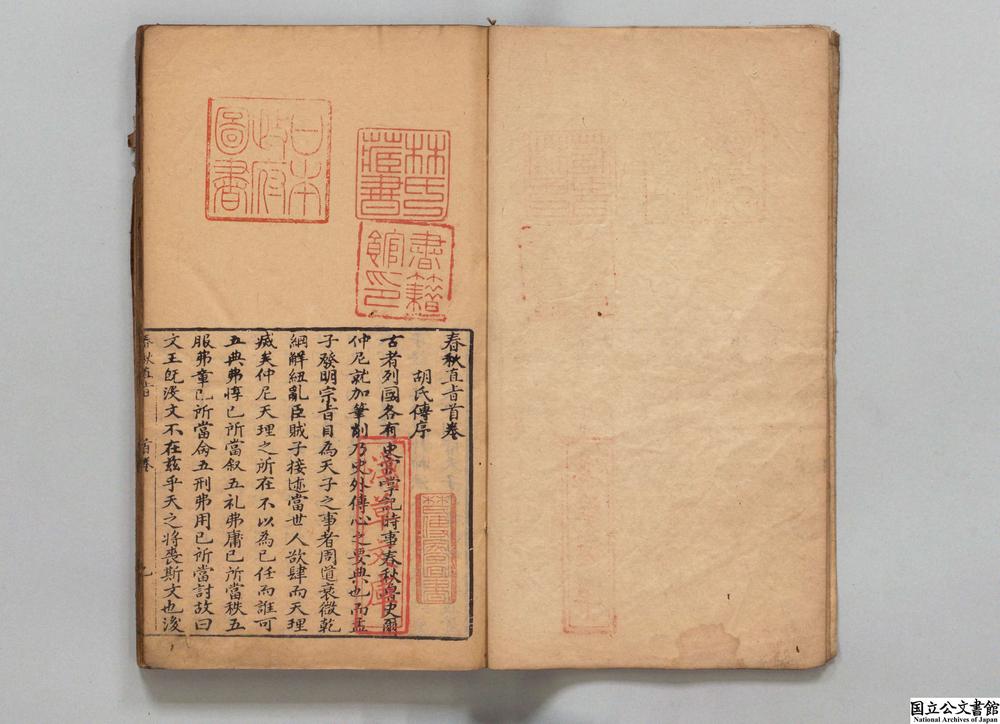 春秋直旨首卷
胡氏傳序
古者列國各有史官掌記時事春秋魯史爾
仲尼就加筆削乃史外傳心之要典也而孟
子發明宗旨目為天子之事者周道衰微乾
綱解紐亂臣賊子接迹當世人欲肆而天理
滅矣仲尼天理之所在不以為己任而誰可
五典弗惇已所當叙五礼弗庸已所當秩五
服弗章已所當命五刑弗用已所當討故曰
文王旣没文不在茲乎天之將喪斯文也後
春秋直旨 首卷
林氏藏書
日本政府圖書
書籍館印
淺草文庫
国立公文書館
National Archives of Japan